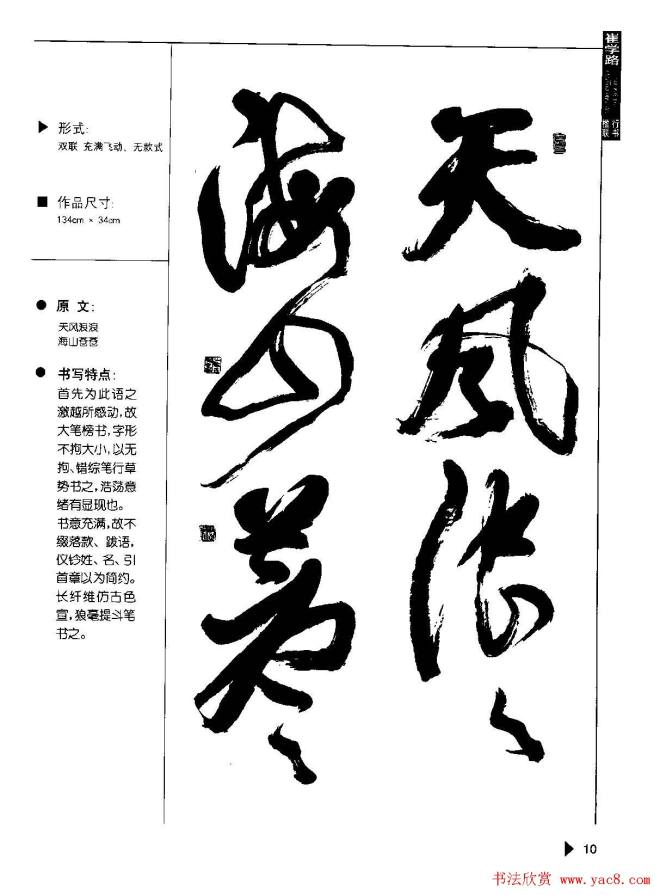 崔学路
行书
楹联
天风浪〻
海山苍〻
▶ 形式:
双联 充满飞动、无款式
■ 作品尺寸:
134cm × 34cm
● 原 文:
天风浪浪
海山苍苍
● 书写特点:
首先为此语之
激越所感动,故
大笔榜书,字形
不拘大小,以无
拘、错综笔行草
势书之,浩荡意
绪有显现也。
书意充满,故不
缀落款、跋语,
仅钤姓、名、引
首章以为简约。
长纤维仿古色
宣,狼毫提斗笔
书之。
▶ 10
书法欣赏 www.yac8.com